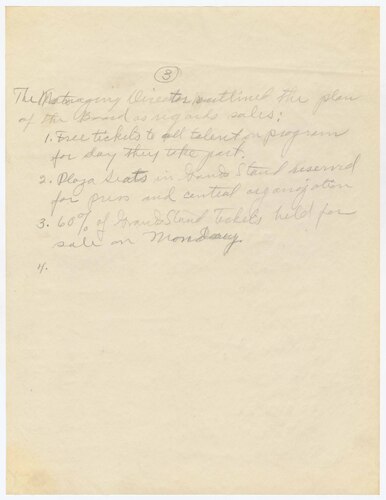 3
The Managing Director outlined the plan
of the Board as regards sales:
1. Free tickets to all talent on program
for day they take part.
2. Plaza Seats in Grand Stand reserved
for press and central organization
3. 60% of Grand Stand Tickets held for
sale on Monday
4.